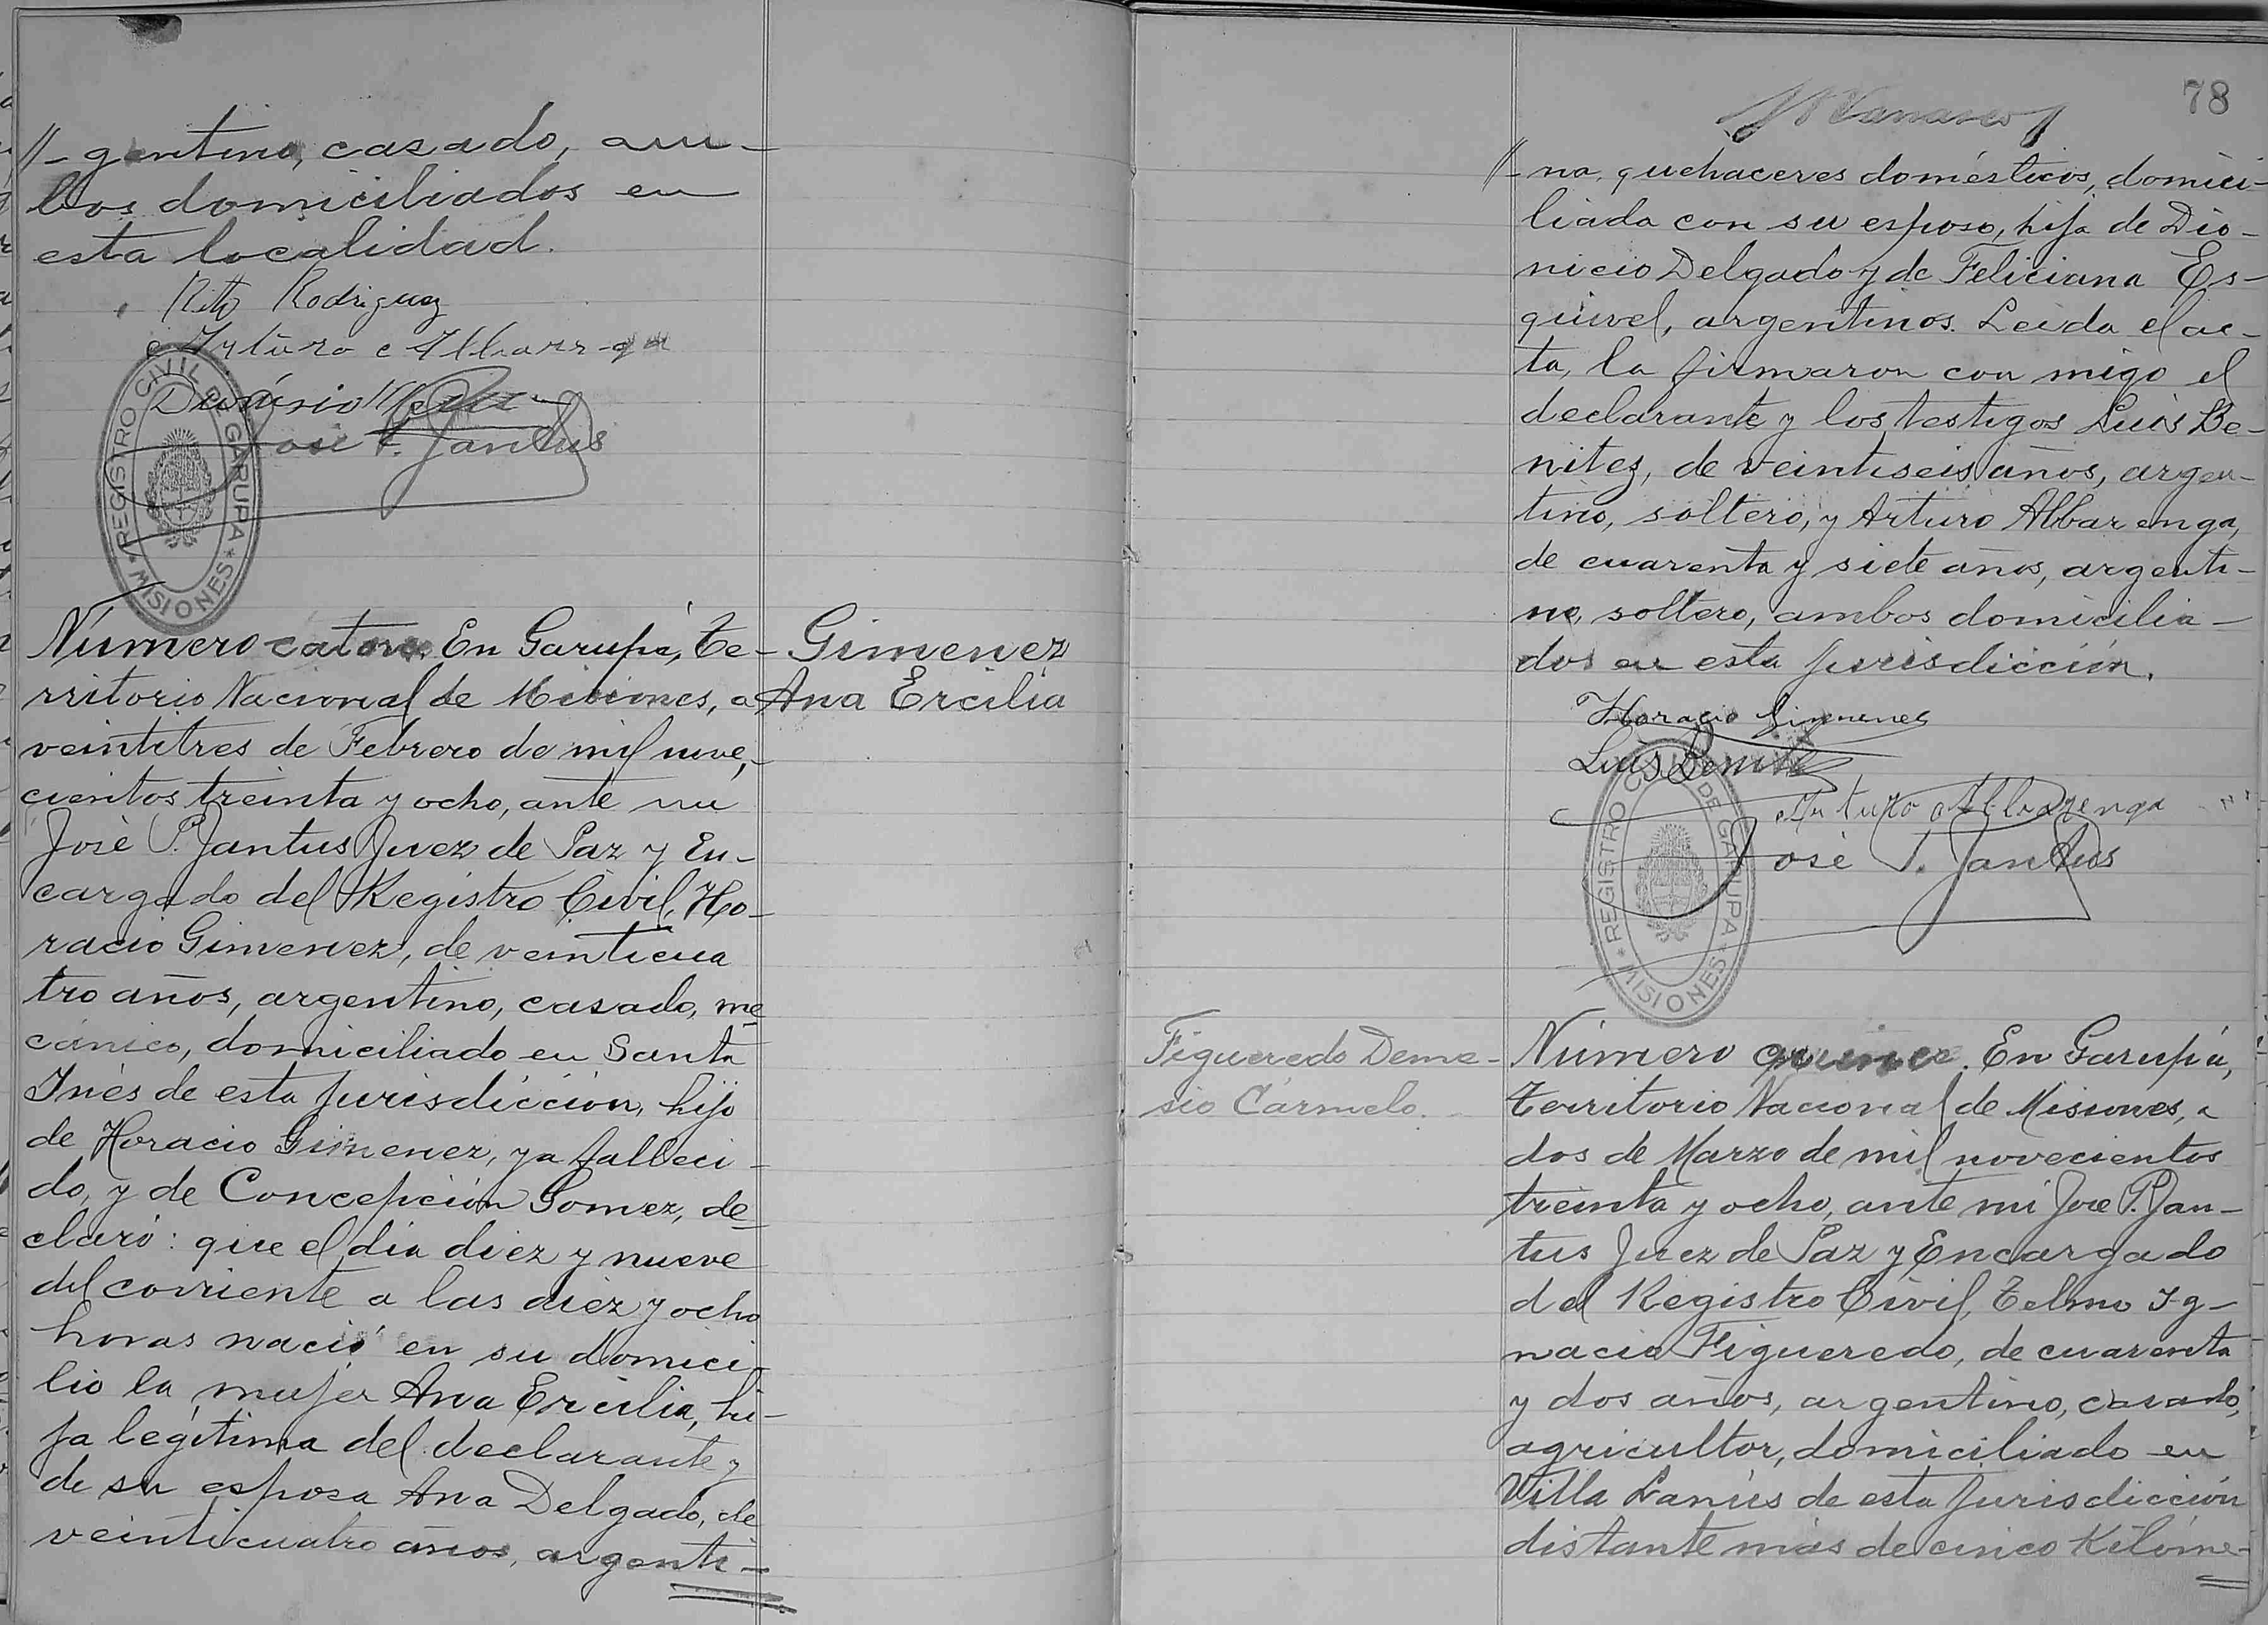 //- gentino, casado, am-
bos domiciliados en
esta localidad.
Rito Rodriguez
Dionisio
José P. Jantus
REGISTRO CIVIL DE GARUPA
* MISIONES *
Número catorce. En Garupá, Te-
rritorio Nacional de Misiones, a
veintitres de Febrero de mil nove-
cientos treinta y ocho, ante mi
José P. Jantus Juez de Paz y En-
cargado del Registro Civil, Ho-
racio Gimenez, de veinticua
tro años, argentino, casado, me
cánico, domiciliado en Santa
Inés de esta jurisdicción, hijo
de Horacio Gimenez, ya falleci-
do, y de Concepción Gomez, de-
claró: que el día diez y nueve
del corriente a las diez y ocho
horas nació en su domici-
lio la mujer Ana Ercilia, hi-
ja legítima del declarante y
de su esposa Ana Delgado, de
veinticuatro años, argenti-
Gimenez
Ana Ercilia
78
//- na, quehaceres domésticos, domici-
liada con su esposo, hija de Dio-
nicio Delgado y de Feliciana Es-
quivel, argentinos. Leida el ac-
ta, la firmaron con migo el
declarante y los testigos Luis Be-
nitez, de veintiseis años, argen-
tino, soltero, y Arturo Albarenga,
de cuarenta y siete años, argenti-
no, soltero, ambos domicilia-
dos en esta jurisdicción.
Horacio Gimenez
Luis Benitez
Arturo Albarenga
José P. Jantus
REGISTRO CIVIL DE GARUPA
* MISIONES *
Figueredo Deme-
sio Cármelo.
Número quince. En Garupá,
Territorio Nacional de Misiones, a
dos de Marzo de mil novecientos
treinta y ocho, ante mi José P. Jan-
tus Juez de Paz y Encargado
del Registro Civil, Telmo Ig-
nacio Figueredo, de cuarenta
y dos años, argentino, casado,
agricultor, domiciliado en
Villa Lanús de esta jurisdicción
distante más de cinco Kilóme-